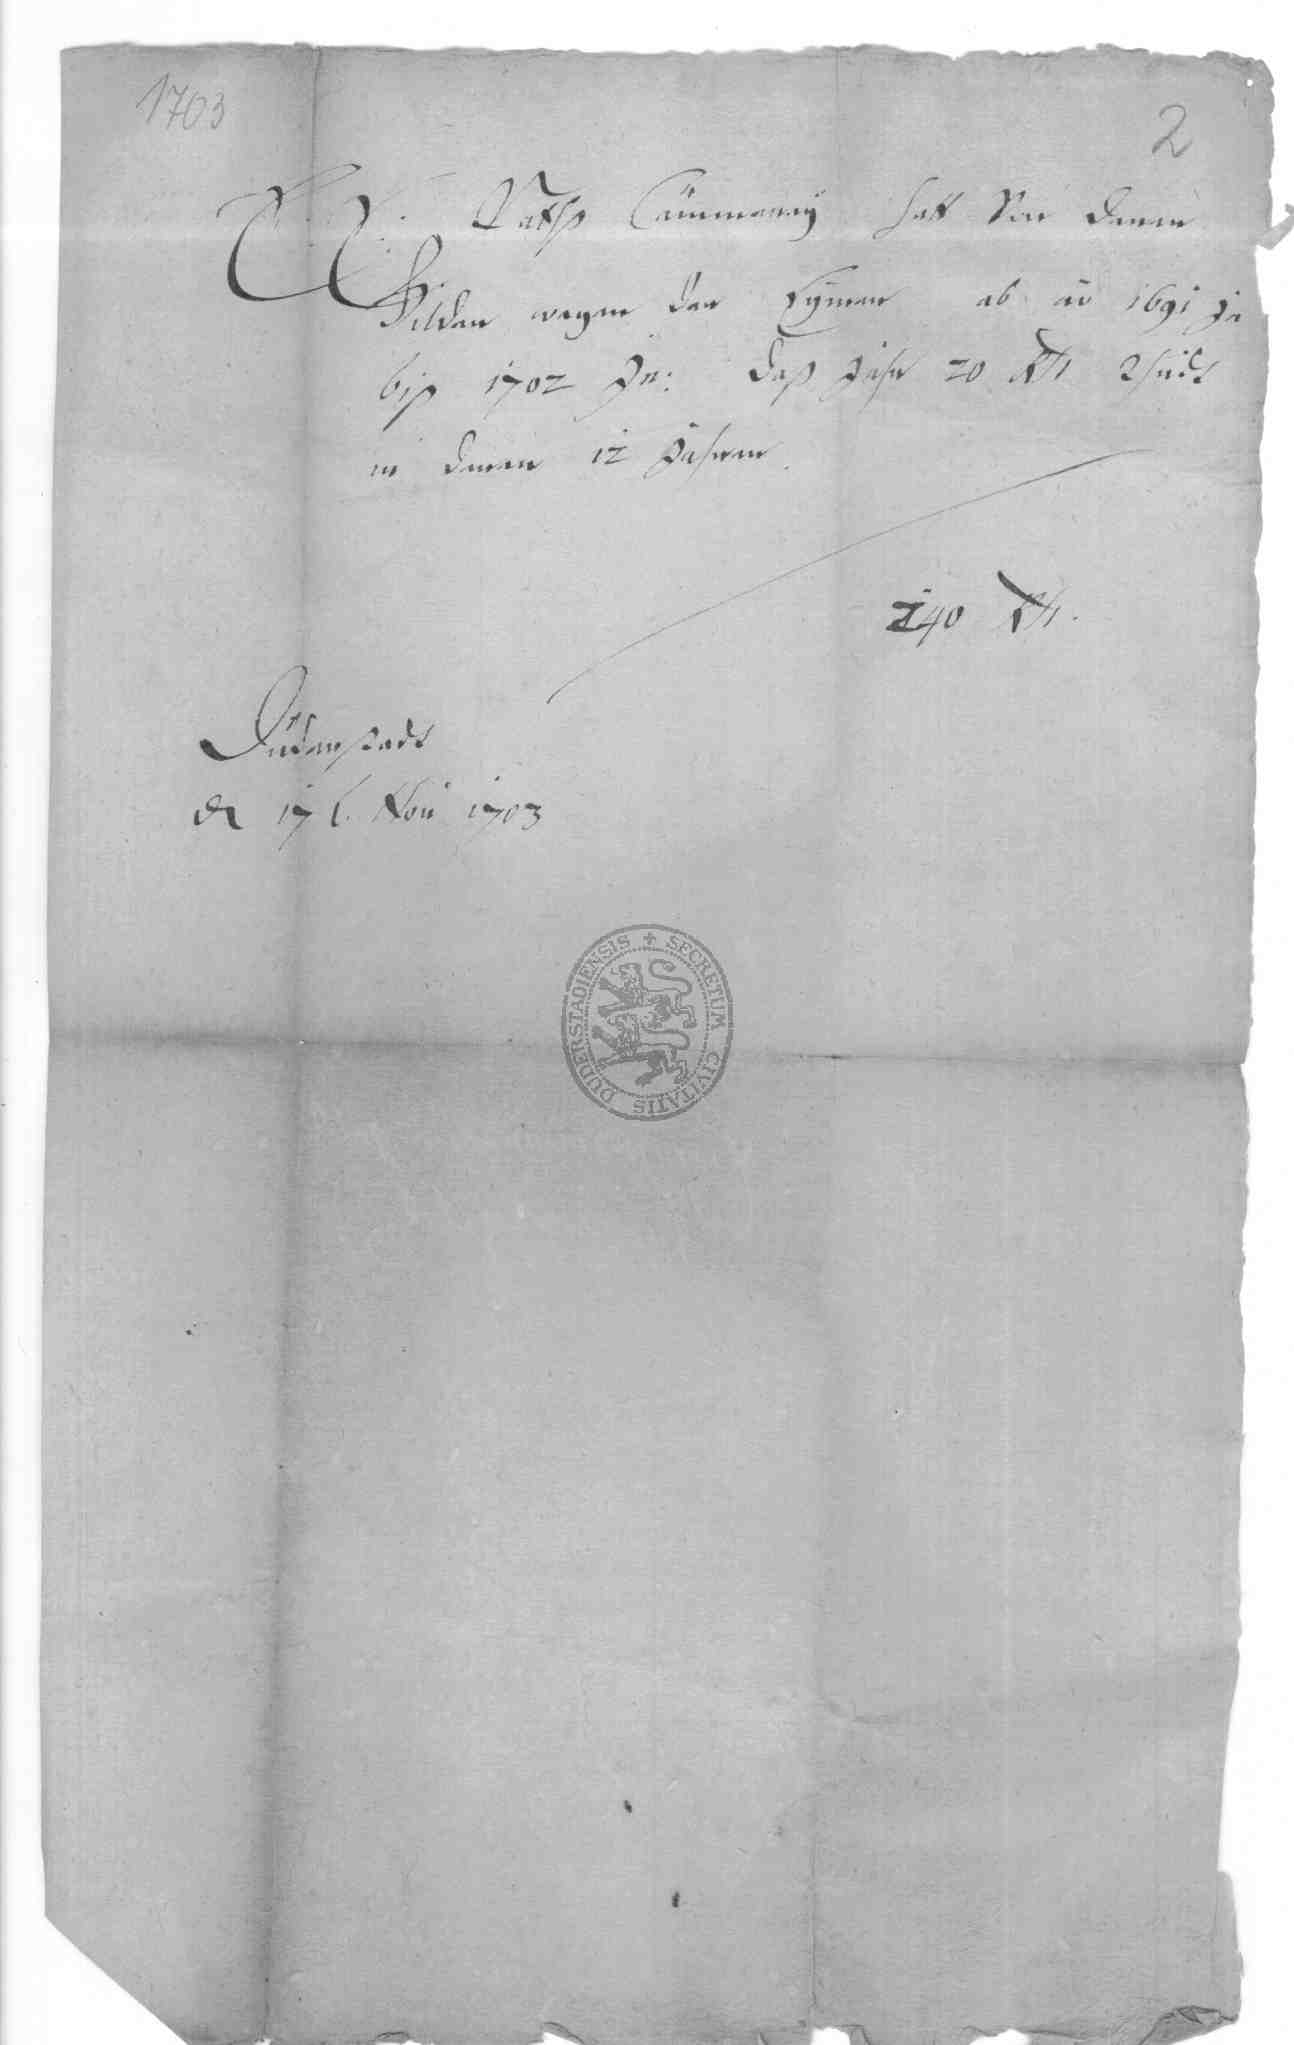 1703
2
E. E. Raths Cämmerey hatt Von denen
Gilden wegen der ab aõ 1691 Ja
biß 1702 Jn: Daß Jahr 20 Rth
in denen 12 Jahren
240 Rth.
Duderstadt
d 17 t. Nou 1703
SECRETUM CIVITATIS DUDERSTADIENSIS